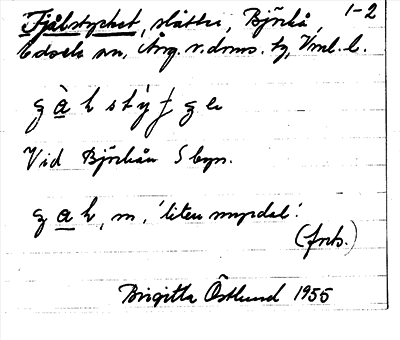 Fjälstycket, slåtter, Björkå 1-2
Edsele sn, Ång. n. doms. tg, Vml. l.
g à h s t ý f g e
Vid Björkån S byn.
g a h, m, 'liten myrdal'.
(frts.)
Brigitta Östlund 1955